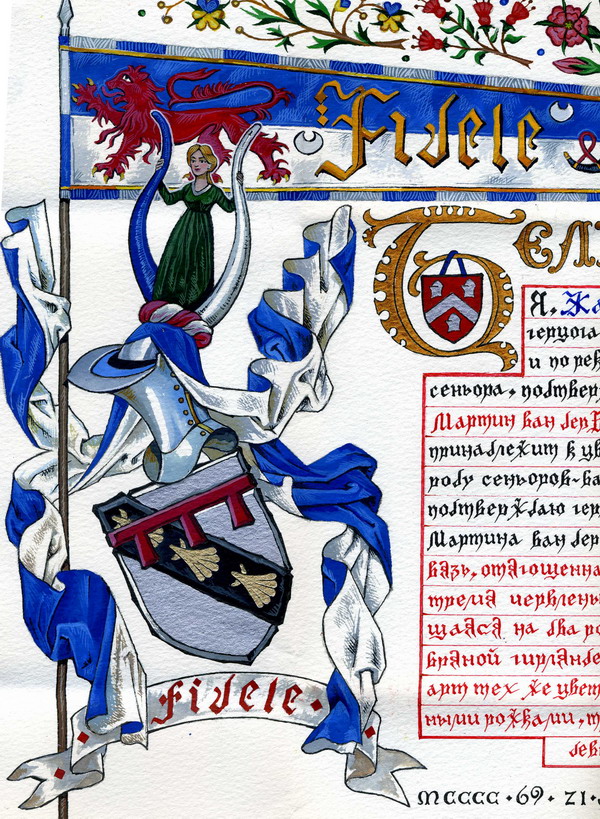 Fidele
Я.
герцога
и по
сеньора, подтвер
Мартин ван дер
принадлежит к
роду сеньоров
подтверждаю гер
Мартина ван дер
вязь, отягощенна
тремя червлены
щаяся на два ро
враной гирлянде
арт тех же цвет
ными рожками, т
Fidele.
MCCCC · 69 · 21 ·